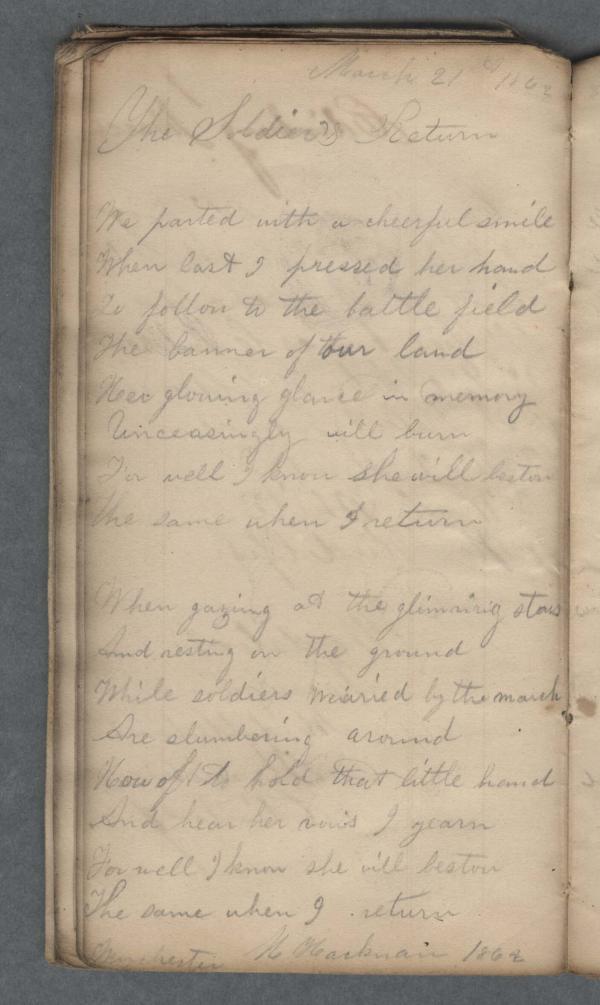 March 21st 1862
The Soldiers Return
We parted with a cheerful smile
When last I pressed her hand
To follow to the battle field
The banner of our land
Her glowing glance in memory
Unceasingly will burn
For well I know she will bestow
The same when I return
When gazing at the glimring stars
And resting on the ground
While soldiers wearied by the march
Are slumbering around
How oft to hold that little hand
And hear her vows I yearn
For well I know she will bestow
The same when I return
Winchester 1862